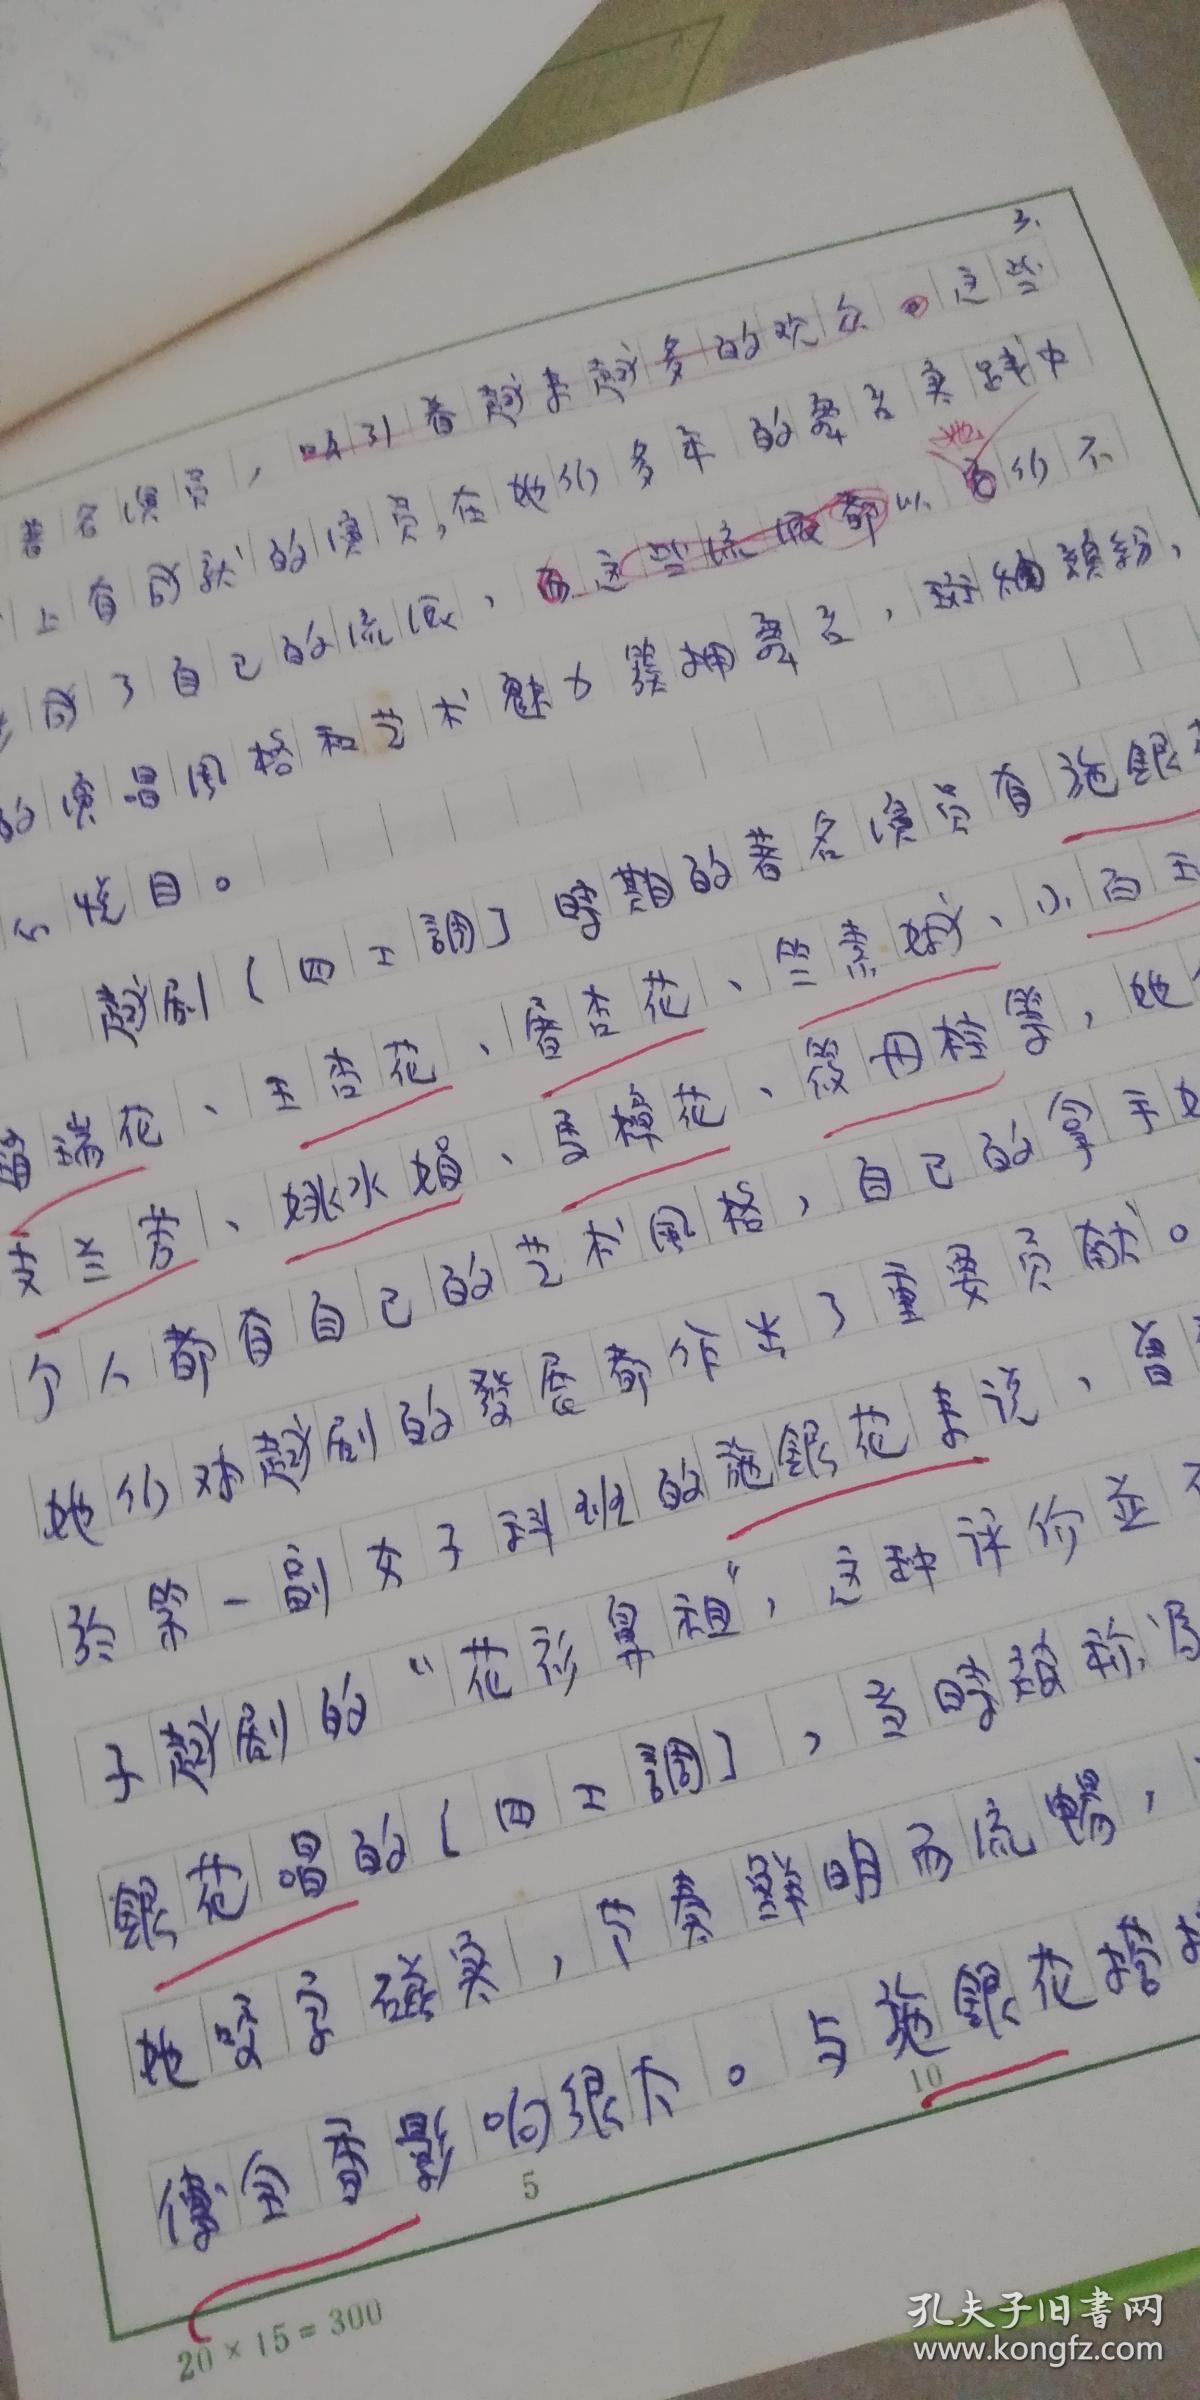 3.
著名演员，吸引着越来越多的观众。这些
上有成就的演员，在她们多年的舞台实践中
成了自己的流派，而这些流派都以她们不
的演唱风格和艺术魅力簇拥舞台，斑斓缤纷，
人悦目。
越剧〔四工調〕時期的著名演员有施銀
瑞花、王杏花、屠杏花、竺素娥、小白玉
支兰芳、姚水娟、馬樟花、筱丹桂等，她
个人都有自己的艺术風格，自己的拿手好
她们对越剧的發展都作出了重要贡献。
於第一副女子科班的施銀花来说，曾
子越剧的“花衫鼻祖”，这种评价並不
銀花唱的〔四工調〕，当時被称为
她咬字磁实，节奏鲜明而流暢，
傅全香影响很大。与施銀花搭
5
10
20×15=300
孔夫子旧書网
www.kongfz.com